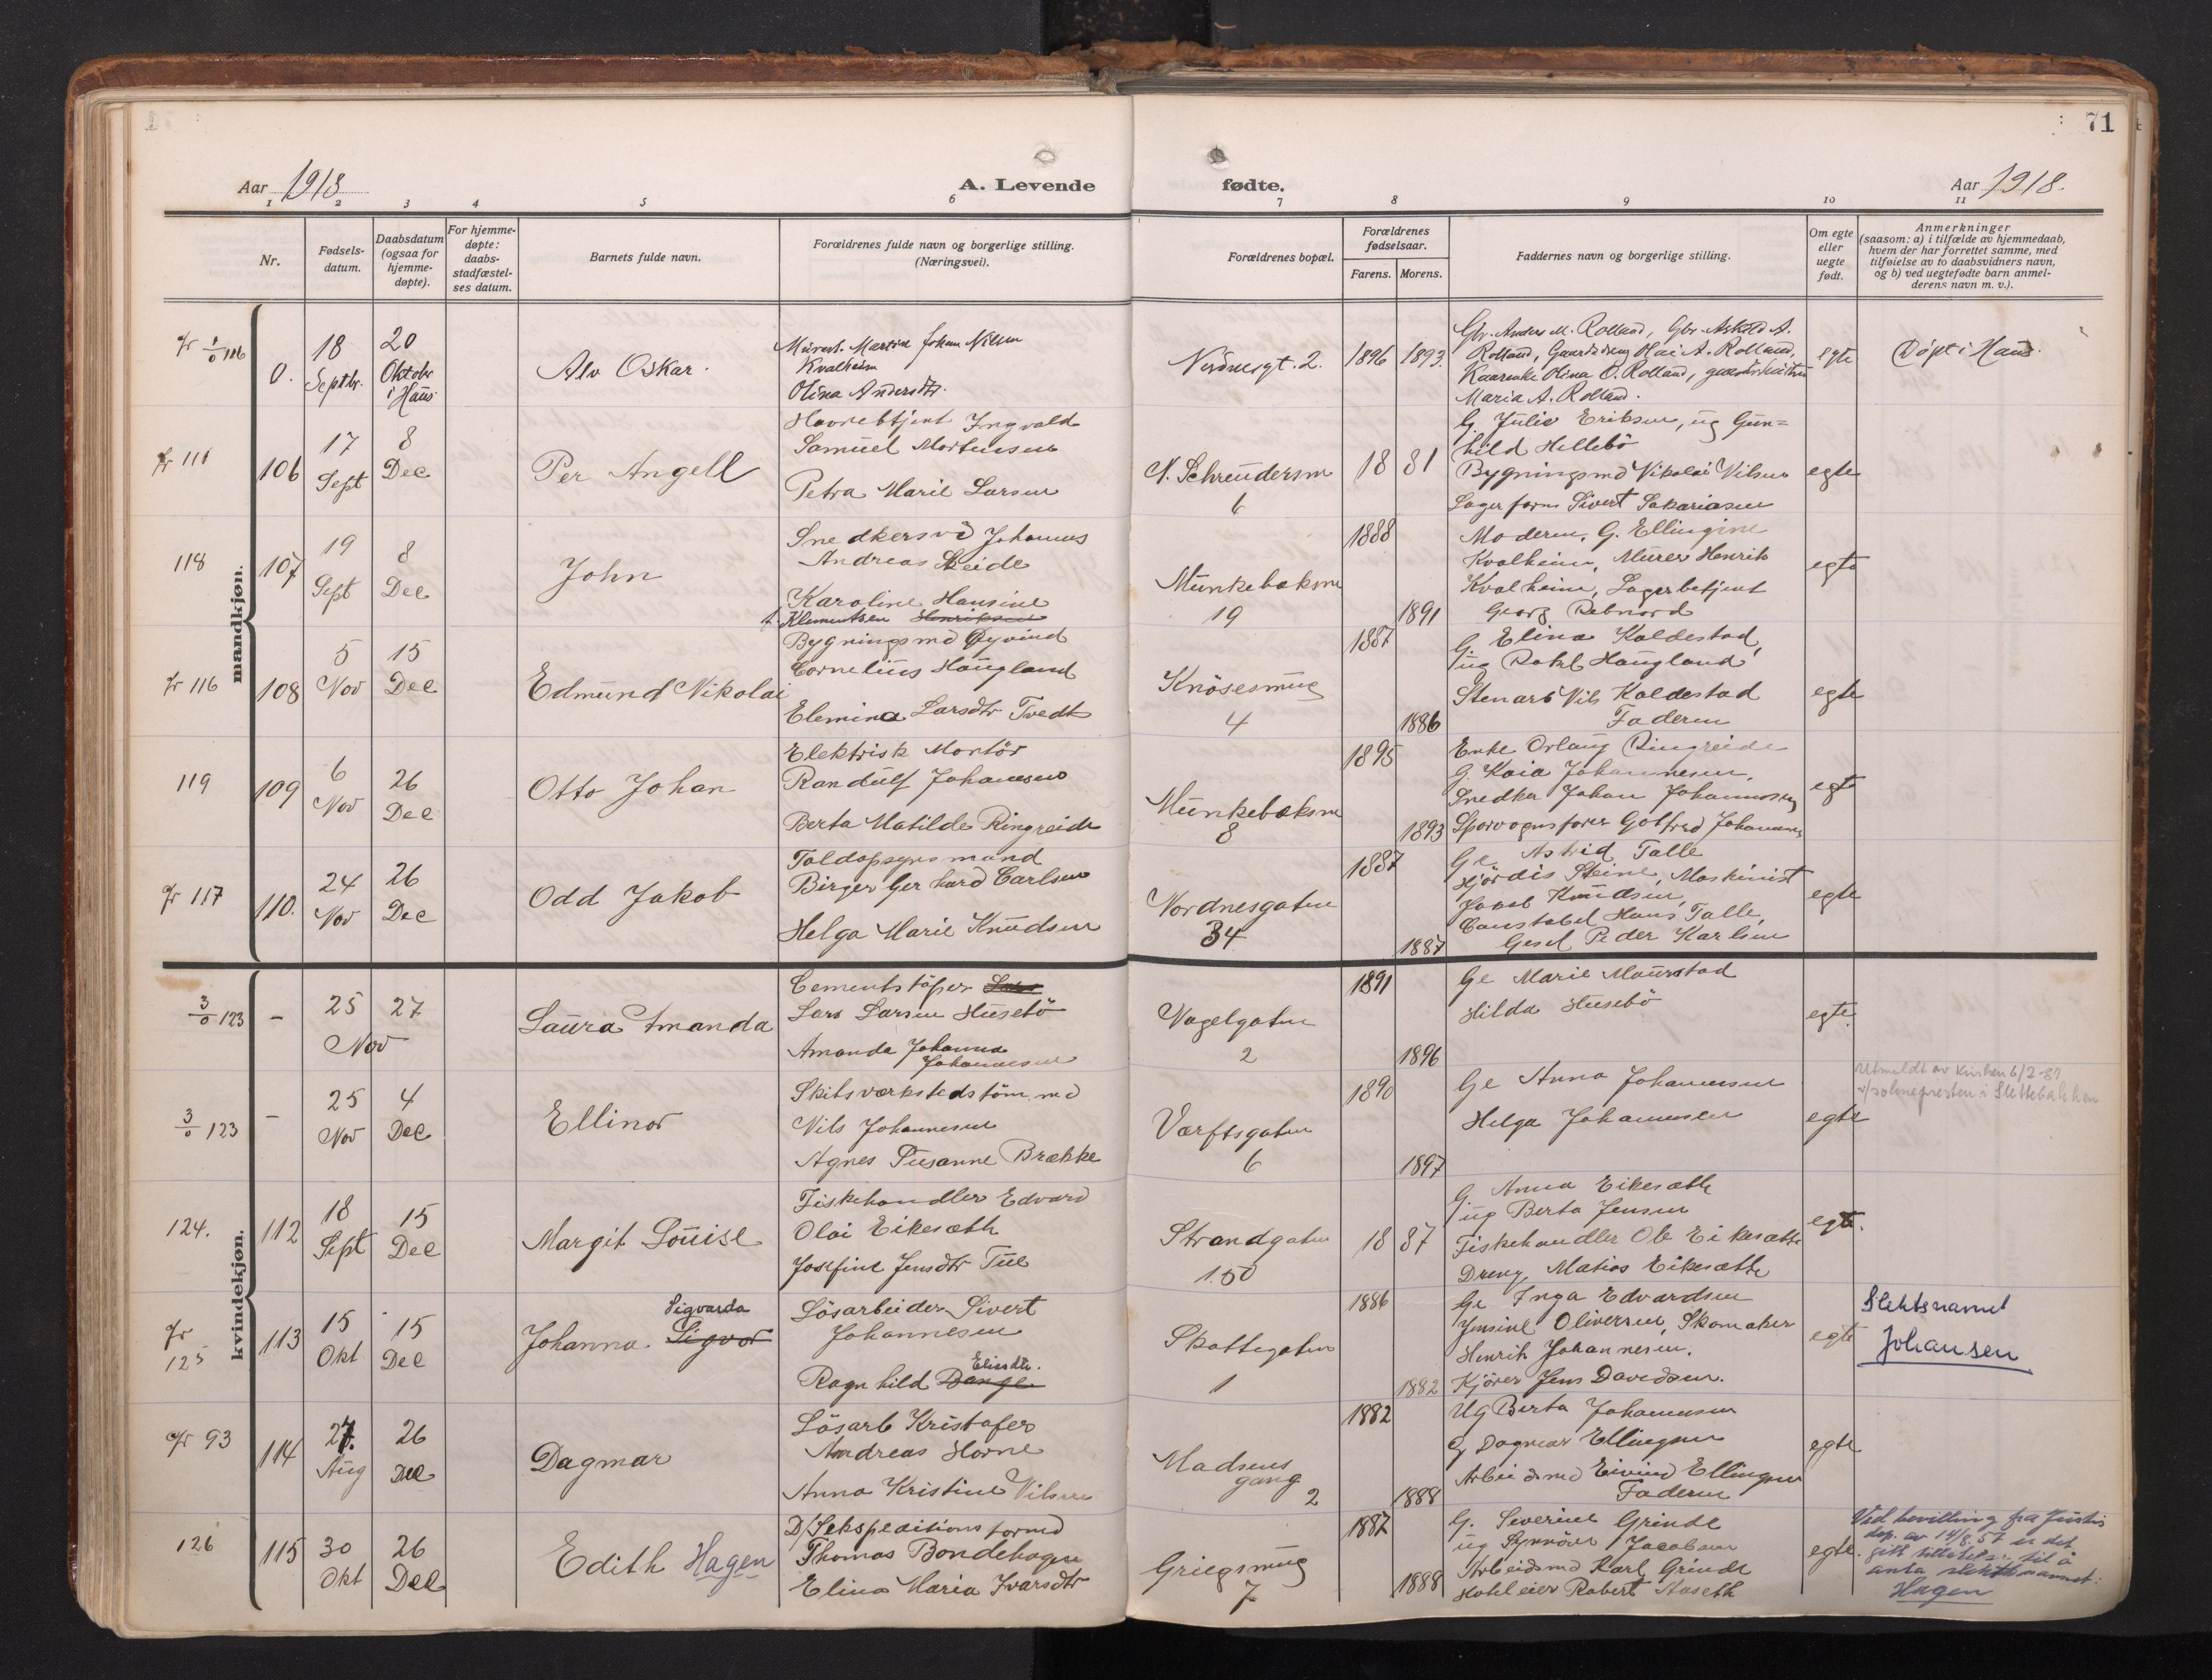 71
Aar 1918
A. Levende
fødte.
Aar 1918.
1 2 3 4 5 6 7 8 9 10 11
Nr.
Fødsels-
datum.
Daabsdatum
(ogsaa for
hjemme-
døpte).
For hjemme-
døpte:
daabs-
stadfæstel-
ses datum.
Barnets fulde navn.
Forældrenes fulde navn og borgerlige stilling.
(Næringsvei).
Forældrenes bopæl.
Forældrenes
fødselsaar.
Farens. Morens.
Faddernes navn og borgerlige stilling.
Om egte
eller
uegte
født.
Anmerkninger
(saasom: a) i tilfælde av hjemmedaab,
hvem der har forrettet samme, med
tilføielse av to daabsvidners navn,
og b) ved uegtefødte barn anmel-
derens navn m. v.).
mandkjøn.
0.
18
Septbr.
20
Oktobr
i Haus
Alv Oskar.
Murerst. Martin Johan Nilsen
Kvalheim
Olina Andersdtr.
Nordnesgt. 2.
1896 1893.
Gbr. Anders M. Rolland, Gbr. Askild A.
Rolland, Gaardsdreng Hai A. Rolland,
Kaarenke Olina O. Rolland,
Maria A. Rolland.
egte
Døpt i Haus.
106
17
Sept
8
Dec
Per Angell
Havnebtjent Ingvald
Samuel Mortensen
Petra Marie Larsen
N. Schreudersm
6
18 81
G. Julie Eriksen, ug Gun=
hild Hellebö
Bygningsmd Nikolai Nilsen
Lagerform Sivert Sakariasen
egte
118
107
19
Sept
8
Dec
John
Snedkersv Johannes
Andreas Leide
Karoline Hansine
Klementsen Henriksen
Munkebæksm
19
1888
1891
Moderen, G. Ellingine
Kvalheim, Murer Henrik
Kvalheim, Lagerbetjent
Georg Rebnord
egte
116
108
5
Nov
15
Dec
Edmund Nikolai
Bygningsmd Øyvind
Cornelius Haugland
Elemina Larsdtr Tvedt
Knösesmug
4
1887
1886
G. Elina Koldestad,
ug Rakel Haugland
Stenarb Nils Koldestad
Faderen
egte
119
109
6
Nov
26
Dec
Otto Johan
Elektrisk Montör
Randulf Johannesen
Berta Matilde Ringreide
Munkebæksm
8
1895
1893
Enke Orlaug Ringreide
G. Kaia Johannesen,
Snedker Johan Johannesen
Sporvognsförer Gotfred Johannes
egte
117
110.
24
Nov
26
Dec
Odd Jakob
Toldopsynsmand
Birger Gerhard Carlsen
Helga Marie Knudsen
Nordnesgaten
34
1887
1887
Ge Astrid Talle
Hjördis Steine, Maskinist
Jakob Knudsen,
Constabel Hans Talle,
Gesel Peder Karlsen
egte
kvindekjøn.
3/0 123
-
25
27
Nov
Laura Amanda
Cementstöper
Lars Larsen Husebö
Amanda Johanna
Johannesen
Vagelgaten
2
1891
1896
Ge Marie Maurstad
Hilda Husebö
egte.
3/0 123
-
25
Nov
4
Dec
Ellinor
Skibsværkstedstöm md
Nils Johannesen
Agnes Susanne Brække
Værftsgaten
6
1890
1897
Ge Anna Johannesen
Helga Johannesen
egte
Utmeldt av kirken 6/2-89
v/soknepresten i Slettebakken
124.
112
18
Sept
15
Dec
Margit Louise
Fiskehandler Edvard
Olai Eikesæth
Josefine Jensdtr Tue
Strandgaten
150
18 87
G. Anna Eikesæth
ug Berta Jensen
Fiskehandler Ole Eikesætte
Dreng Matios Eikesætte
egte.
125
113
15
Okt
15
Dec
Johanna Sigvor
Sigvarda
Lösarbeider Sivert
Johannesen
Ragnhild Bange
Eliasdtr.
Skottegaten
1
1886
1882
Ge Inga Edvardsen
Jensine Oliversen, Skomaker
Henrik Johannesen.
Kjörer Jens Davidsen.
egte
Slektsnavnet
Johansen
93
114
27.
Aug
26
Dec
Dagmar
Lösarb Kristofer
Andreas Horne
Anna Kristine Nilsen
Madsens
gang
2
1882
1888
Ug Berta Johannesen
G Dagmar Ellingsen
Arbeidsmd Eivind Ellingsen
Faderen
egte
126
115
30
Okt
26
Dec
Edith Hagen
D/S ekspeditionsformd
Thomas Bondehagen
Elina Maria Ivarsdtr
Griegsmug
7
1887
1888
G. Severine Grinde
ug Synnöve Jacobsen
Arbeidsmd Karl Grinde
Hoteleier Robert Aaseth
egte.
Ved bevilling fra Justis
dep. av 14/8.57 er det
gitt tillatelse til å
anta slektsnavnet:
Hagen